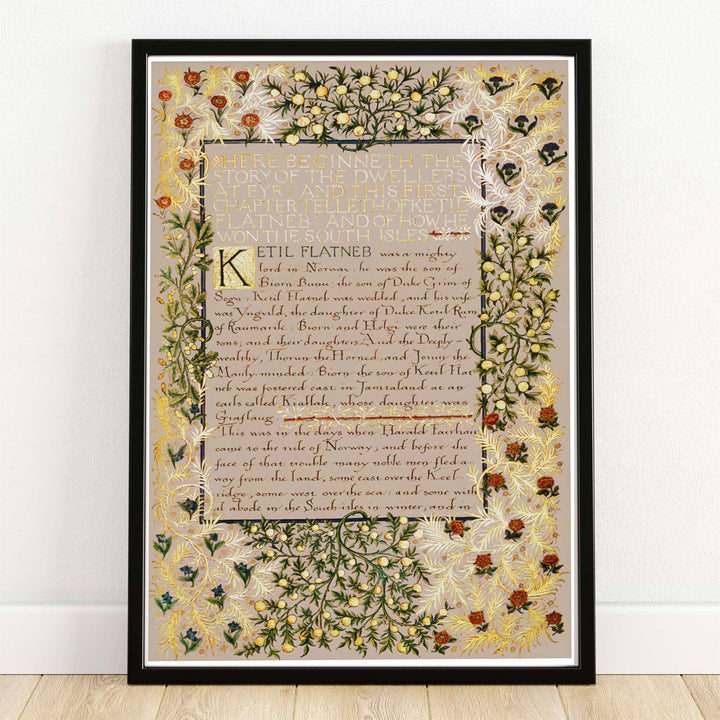 HERE BEGINNETH THE
STORY OF THE DWELLERS
AT EYR AND THIS FIRST
CHAPTER TELLETH OF KETIL
FLATNEB AND OF HOW HE
WON THE SOUTH ISLES
KETIL FLATNEB was a mighty
lord in Norway: he was the son of
Biorn Bunu, the son of Duke Grim of
Sogn: Ketil Flatneb was wedded, and his wife
was Yngvild, the daughter of Duke Ketil Ram
of Raumarik: Biorn and Helgi were their
sons; and their daughters Aud the Deeply-
wealthy, Thorun the Horned, and Jorun the
Manly-minded: Biorn the son of Ketil Flat
neb was fostered east in Jamtaland at an
earls called Kiallak, whose daughter was
Giaflaug
This was in the days when Harald Fairhai
came to the rule of Norway, and before the
face of that trouble many noble men fled a
way from the land, some east over the Keel
ridge, some west over the sea: and some with
al abode in the South-isles in winter, and in